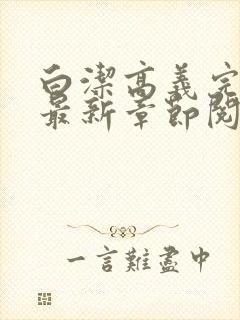 白潔高義完
最新章節閱
一言難盡中